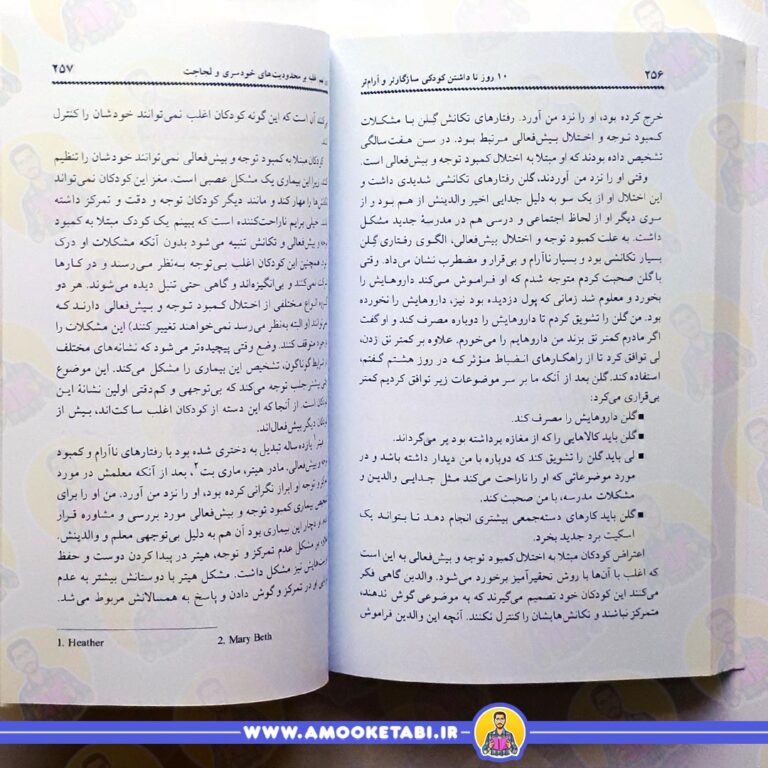 ۲۵۶
۱۰ روز تا داشتن کودکی سازگارتر و آرام‌تر
خرج کرده بود، او را نزد من آورد. رفتارهای تکانش گلن با مشکلات
کمبود توجه و اختلال بیش‌فعالی مرتبط بود. در سن هفت‌سالگی
تشخیص داده بودند که او مبتلا به اختلال کمبود توجه و بیش‌فعالی است.
وقتی او را نزد من آوردند، گلن رفتارهای تکانشی شدیدی داشت و
این اختلال او از یک سو به دلیل جدایی اخیر والدینش از هم بود و از
سوی دیگر او از لحاظ اجتماعی و درسی هم در مدرسهٔ جدید مشکل
داشت. به علت کمبود توجه و اختلال بیش‌فعالی، الگوی رفتاری گلن
بسیار تکانشی بود و بسیار ناآرام و بی‌قرار و مضطرب نشان می‌داد. وقتی
با گلن صحبت کردم متوجه شدم که او فراموش می‌کند داروهایش را
بخورد و معلوم شد زمانی که پول دزدیده بود نیز، داروهایش را نخورده
بود. من گلن را تشویق کردم تا داروهایش را دوباره مصرف کند و او گفت
اگر مادرم کمتر نق بزند من داروهایم را می‌خورم. علاوه بر کمتر نق زدن،
لی توافق کرد تا از راهکارهای انضباط مؤثر که در روز هشتم گفتم،
استفاده کند. گلن بعد از آنکه ما بر سر موضوعات زیر توافق کردیم کمتر
بی‌قراری می‌کرد:
■ گلن داروهایش را مصرف کند.
■ گلن باید کالاهایی را که از مغازه برداشته بود پر می‌گرداند.
■ لی باید گلن را تشویق کند که دوباره با من دیدار داشته باشد و در
مورد موضوعاتی که او را ناراحت می‌کند مثل جدایی والدین و
مشکلات مدرسه، با من صحبت کند.
■ گلن باید کارهای دسته‌جمعی بیشتری انجام دهد تا بتواند یک
اسکیت برد جدید بخرد.
اعتراض کودکان مبتلا به اختلال کمبود توجه و بیش‌فعالی به این است
که اغلب با آن‌ها با روش تحقیرآمیز برخورد می‌شود. والدین گاهی فکر
می‌کنند این کودکان خود تصمیم می‌گیرند که به موضوعی گوش ندهند،
متمرکز نباشند و تکانش‌هایشان را کنترل نکنند. آنچه این والدین فراموش
غلبه بر محدودیت‌های خودسری و لجاجت
۲۵۷
آن است که این گونه کودکان اغلب نمی‌توانند خودشان را کنترل
کودکان مبتلا به کمبود توجه و بیش‌فعالی نمی‌توانند خودشان را تنظیم
زیرا این بیماری یک مشکل عصبی است. مغز این کودکان نمی‌تواند
را مهار کند و مانند دیگر کودکان توجه و دقت و تمرکز داشته
خیلی برایم ناراحت‌کننده است که ببینم یک کودک مبتلا به کمبود
بیش‌فعالی و تکانش تنبیه می‌شود بدون آنکه مشکلات او درک
همچنین این کودکان اغلب بی‌توجه به‌نظر می‌رسند و در کارها
نمی‌کنند و بی‌انگیزه‌اند و گاهی حتی تنبل دیده می‌شوند. هر دو
انواع مختلفی از اختلال کمبود توجه و بیش‌فعالی دارند که
(و البته به‌نظر می‌رسد نمی‌خواهند تغییر کنند) این مشکلات را
متوقف کنند. وضع وقتی پیچیده‌تر می‌شود که نشانه‌های مختلف
شرایط گوناگون، تشخیص این بیماری را مشکل می‌کند. این موضوع
بیشتر جلب توجه می‌کند که بی‌توجهی و کم‌دقتی اولین نشانهٔ این
است. از آنجا که این دسته از کودکان اغلب ساکت‌اند، بیش از
کودکان دیگر بیش‌فعال‌اند.
یازده‌ساله تبدیل به دختری شده بود با رفتارهای ناآرام و کمبود
و بیش‌فعالی. مادر هیتر، ماری بت۲، بعد از آنکه معلمش در مورد
و توجه او ابراز نگرانی کرده بود، او را نزد من آورد. من او را برای
بیماری کمبود توجه و بیش‌فعالی مورد بررسی و مشاوره قرار
او دچار این بیماری بود آن هم به دلیل بی‌توجهی معلم و والدینش.
بر مشکل عدم تمرکز و توجه، هیتر در پیدا کردن دوست و حفظ
نیز مشکل داشت. مشکل هیتر با دوستانش بیشتر به عدم
او در تمرکز و گوش دادن و پاسخ به همسالانش مربوط می‌شد.
1. Heather 2. Mary Beth
WWW.AMOOKETABI.IR